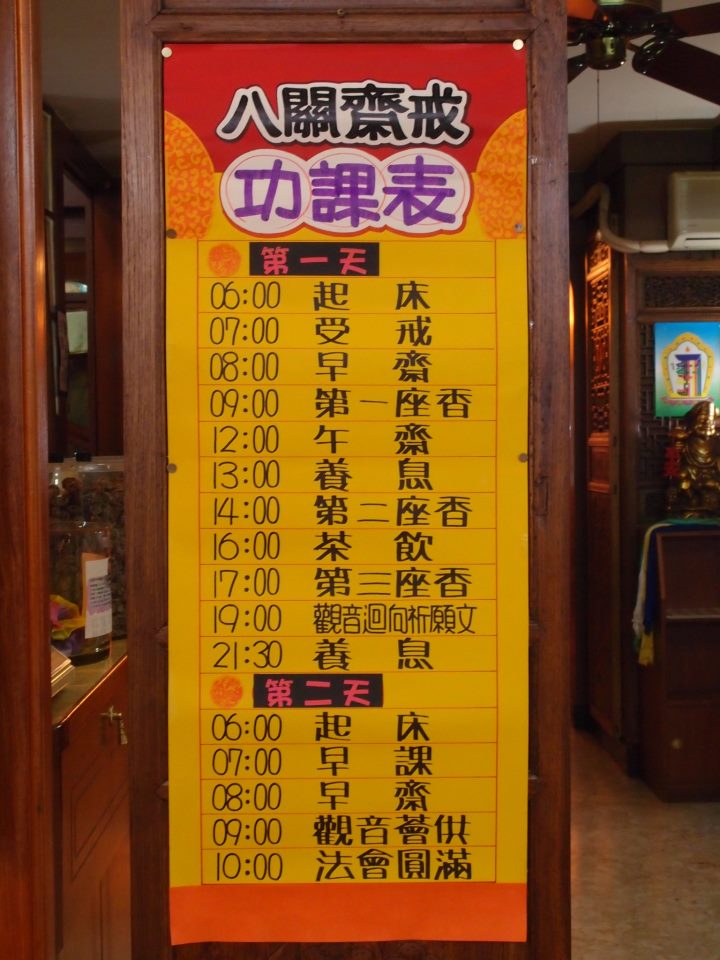 八關齋戒
功課表
第一天
06:00 起床
07:00 受戒
08:00 早齋
09:00 第一座香
12:00 午齋
13:00 養息
14:00 第二座香
16:00 茶飲
17:00 第三座香
19:00 觀音迴向祈願文
21:30 養息
第二天
06:00 起床
07:00 早課
08:00 早齋
09:00 觀音薈供
10:00 法會圓滿